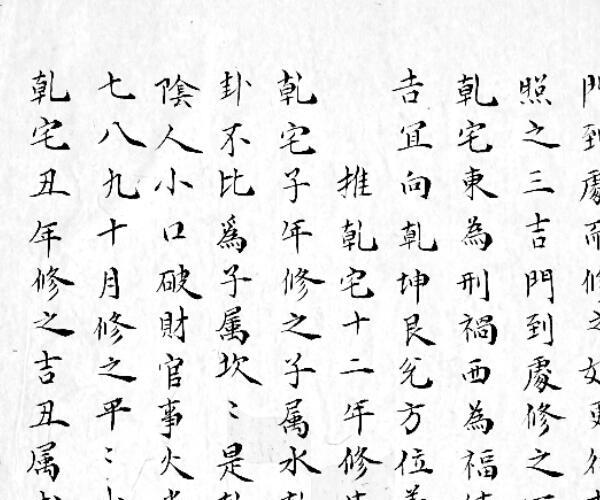 門到處而修之如更
照之三吉門到處修之
乹宅東為刑禍西為福
吉宜向乹坤艮兊方位
推乹宅十二年修
乹宅子年修之子属水
卦不比爲子属坎〻是
陰人小口破財官事火
七八九十月修之平〻
乹宅丑年修之吉丑属